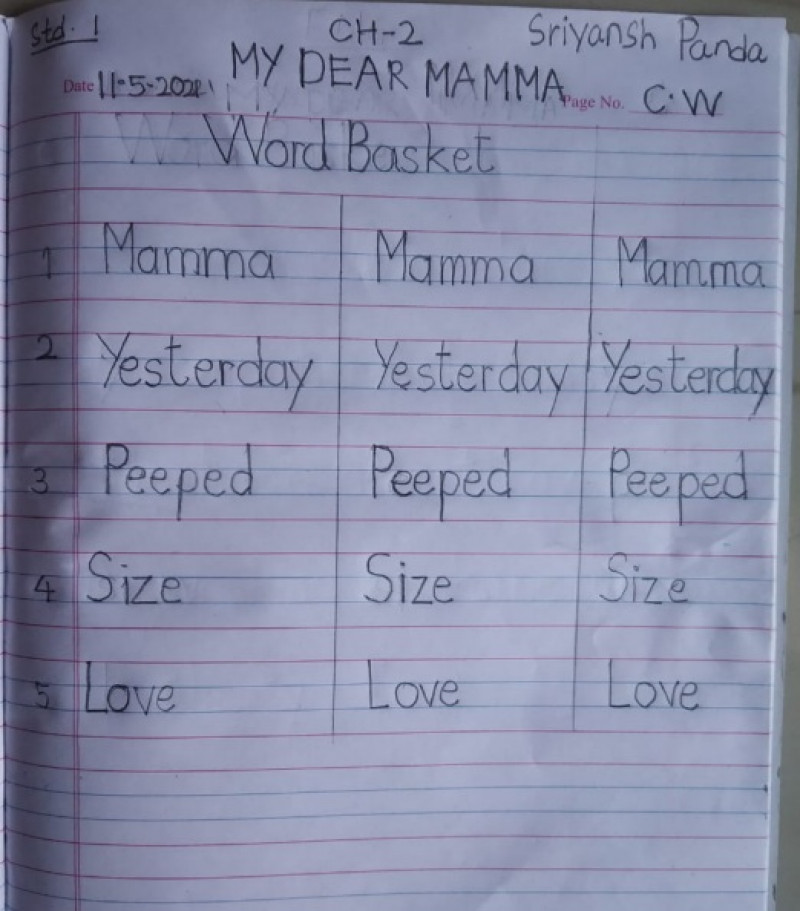 Std. 1 CH-2 Sriyansh Panda
MY DEAR MAMMA
Date 11-5-2021 Page No. C.W
Word Basket
1 Mamma Mamma Mamma
2 Yesterday Yesterday Yesterday
3 Peeped Peeped Peeped
4 Size Size Size
5 Love Love Love